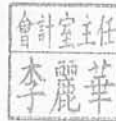 會計室主任
李麗華